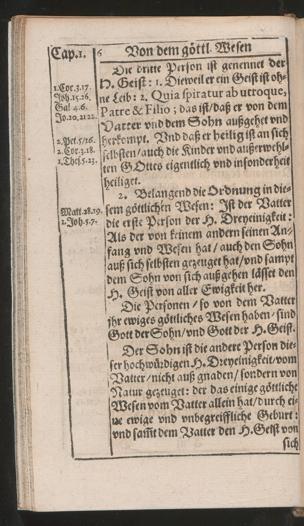 Cap.1. 6 Von dem göttl. Wesen
Die dritte Person ist genennet der
H. Geist: 1. Dieweil er ein Geist ist oh-
ne Leib: 2. Quia spiratur ab utroque,
Patre & Filio; das ist/daß er von dem
Vatter vnd dem Sohn außgehet vnd
herkompt. Vnd daß er heilig ist an sich
selbsten/auch die Kinder vnd außerwehl-
ten GOttes eigentlich vnd insonderheit
heiliget.
1.Cor.3.17.
Joh.15.26.
Gal.4.6.
Jo.20,21.22.
2.Pet.5/16.
2.Cor.3.18.
1.Thes.5.23.
2. Belangend die Ordnung in die-
sem göttlichen Wesen: Ist der Vatter
die erste Person der H. Dreyeinigkeit:
Als der von keinem andern seinen An-
fang vnd Wesen hat/auch den Sohn
auß sich selbsten gezeuget hat/vnd sampt
dem Sohn von sich außgehen lässet den
H. Geist von aller Ewigkeit her.
Matt.28.19.
1.Joh.5.7.
Die Personen/so von dem Vatter
ihr ewiges göttliches Wesen haben/sind
Gott der Sohn/vnd Gott der H. Geist.
Der Sohn ist die andere Person die-
ser hochwürdigen H. Dreyeinigkeit/vom
Vatter/nicht auß gnaden/sondern von
Natur gezeuget: der das einige göttliche
Wesen vom Vatter allein hat/durch ei-
ne ewige vnd vnbegreiffliche Geburt:
vnd sam̃t dem Vatter den H. Geist von
sich